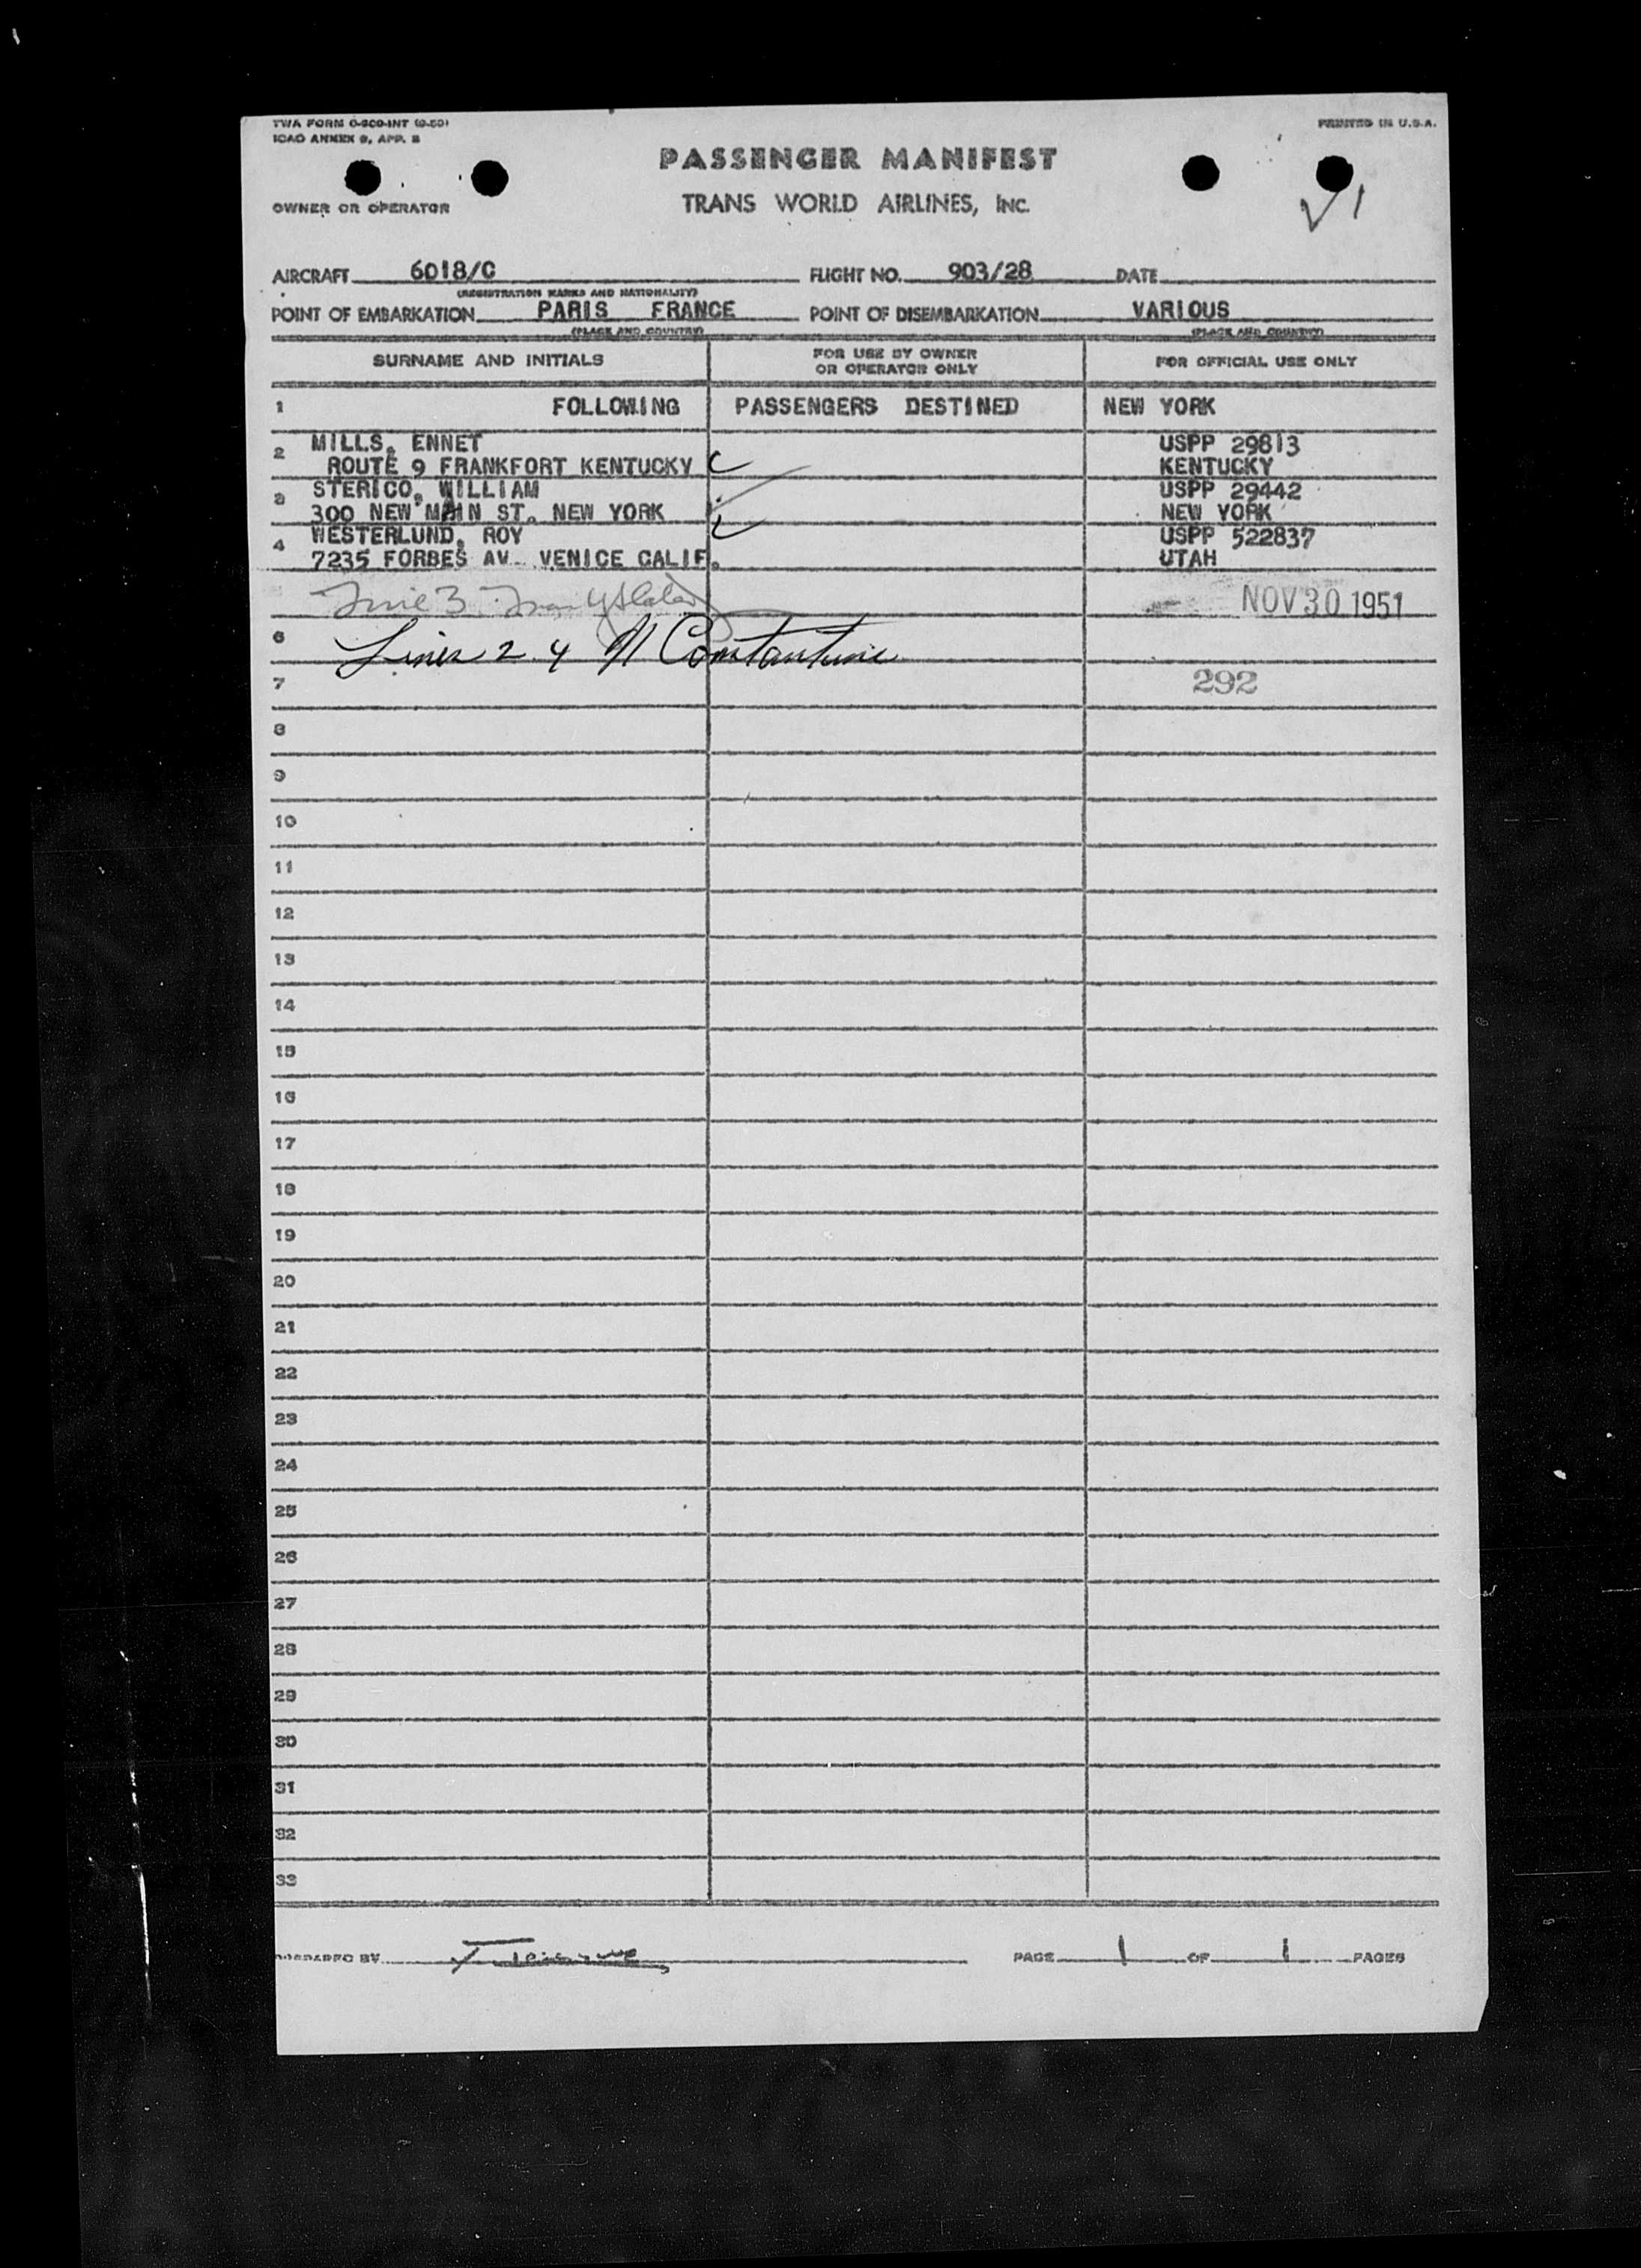 TWA FORM O-800-INT (9-50)
ICAO ANNEX 9, APP. B
PRINTED IN U.S.A.
PASSENGER MANIFEST
OWNER OR OPERATOR TRANS WORLD AIRLINES, INC.
AIRCRAFT 6018/C FLIGHT NO. 903/28 DATE
(REGISTRATION MARKS AND NATIONALITY)
POINT OF EMBARKATION PARIS FRANCE POINT OF DISEMBARKATION VARIOUS
(PLACE AND COUNTRY) (PLACE AND COUNTRY)
SURNAME AND INITIALS FOR USE BY OWNER OR OPERATOR ONLY FOR OFFICIAL USE ONLY
1 FOLLOWING PASSENGERS DESTINED NEW YORK
2 MILLS, ENNET USPP 29813
ROUTE 9 FRANKFORT KENTUCKY KENTUCKY
3 STERICO, WILLIAM USPP 29442
300 NEW MAIN ST. NEW YORK NEW YORK
4 WESTERLUND, ROY USPP 522837
7235 FORBES AV. VENICE CALIF. UTAH
Line 3 NOV 30 1951
6 Lines 2 4 M Constantine
7 292
8
9
10
11
12
13
14
15
16
17
18
19
20
21
22
23
24
25
26
27
28
29
30
31
32
33
PREPARED BY PAGE 1 OF 1 PAGES